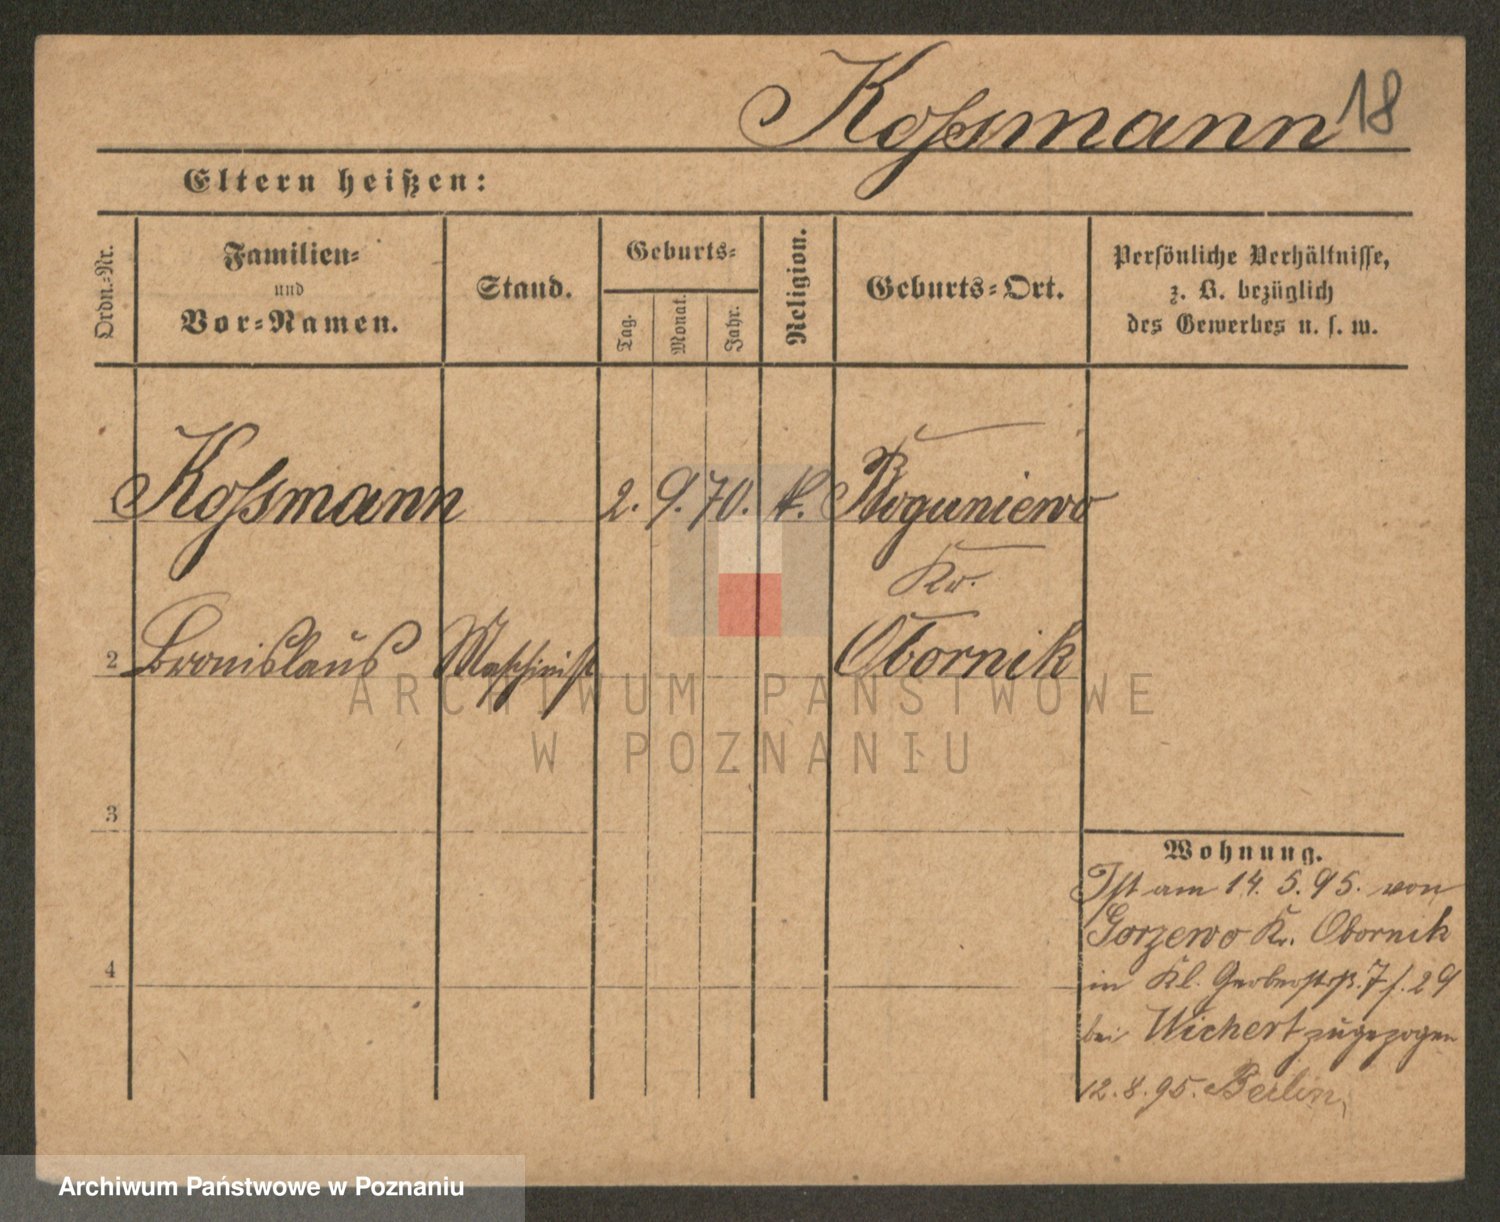 Koſsmann 18
Eltern heißen:
Ordn.-Nr.
Familien-
und
Vor-Namen.
Stand.
Geburts-
Tag.
Monat.
Jahr.
Religion.
Geburts-Ort.
Persönliche Verhältnisse,
z. B. bezüglich
des Gewerbes u. s. w.
Koſsmann 2. 9. 70. k. Boguniewo
Kr.
2 Bronislaus Maschinist Obornik
3
4
Wohnung.
Ist am 14. 5. 95. von
Gorzewo Kr. Obornik
in Kl. Gerberstrß. 7 f. 29
bei Wichert zugezogen
12. 8. 95. Berlin.
ARCHIWUM PAŃSTWOWE
W POZNANIU
Archiwum Państwowe w Poznaniu